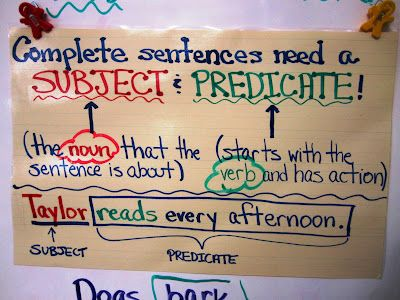 Complete sentences need a
SUBJECT & PREDICATE!
(the noun that the sentence is about)
(starts with the verb and has action)
Taylor reads every afternoon.
SUBJECT PREDICATE
Dogs bark